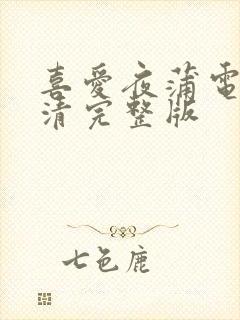 喜愛夜蒲電
清完整版
七色鹿